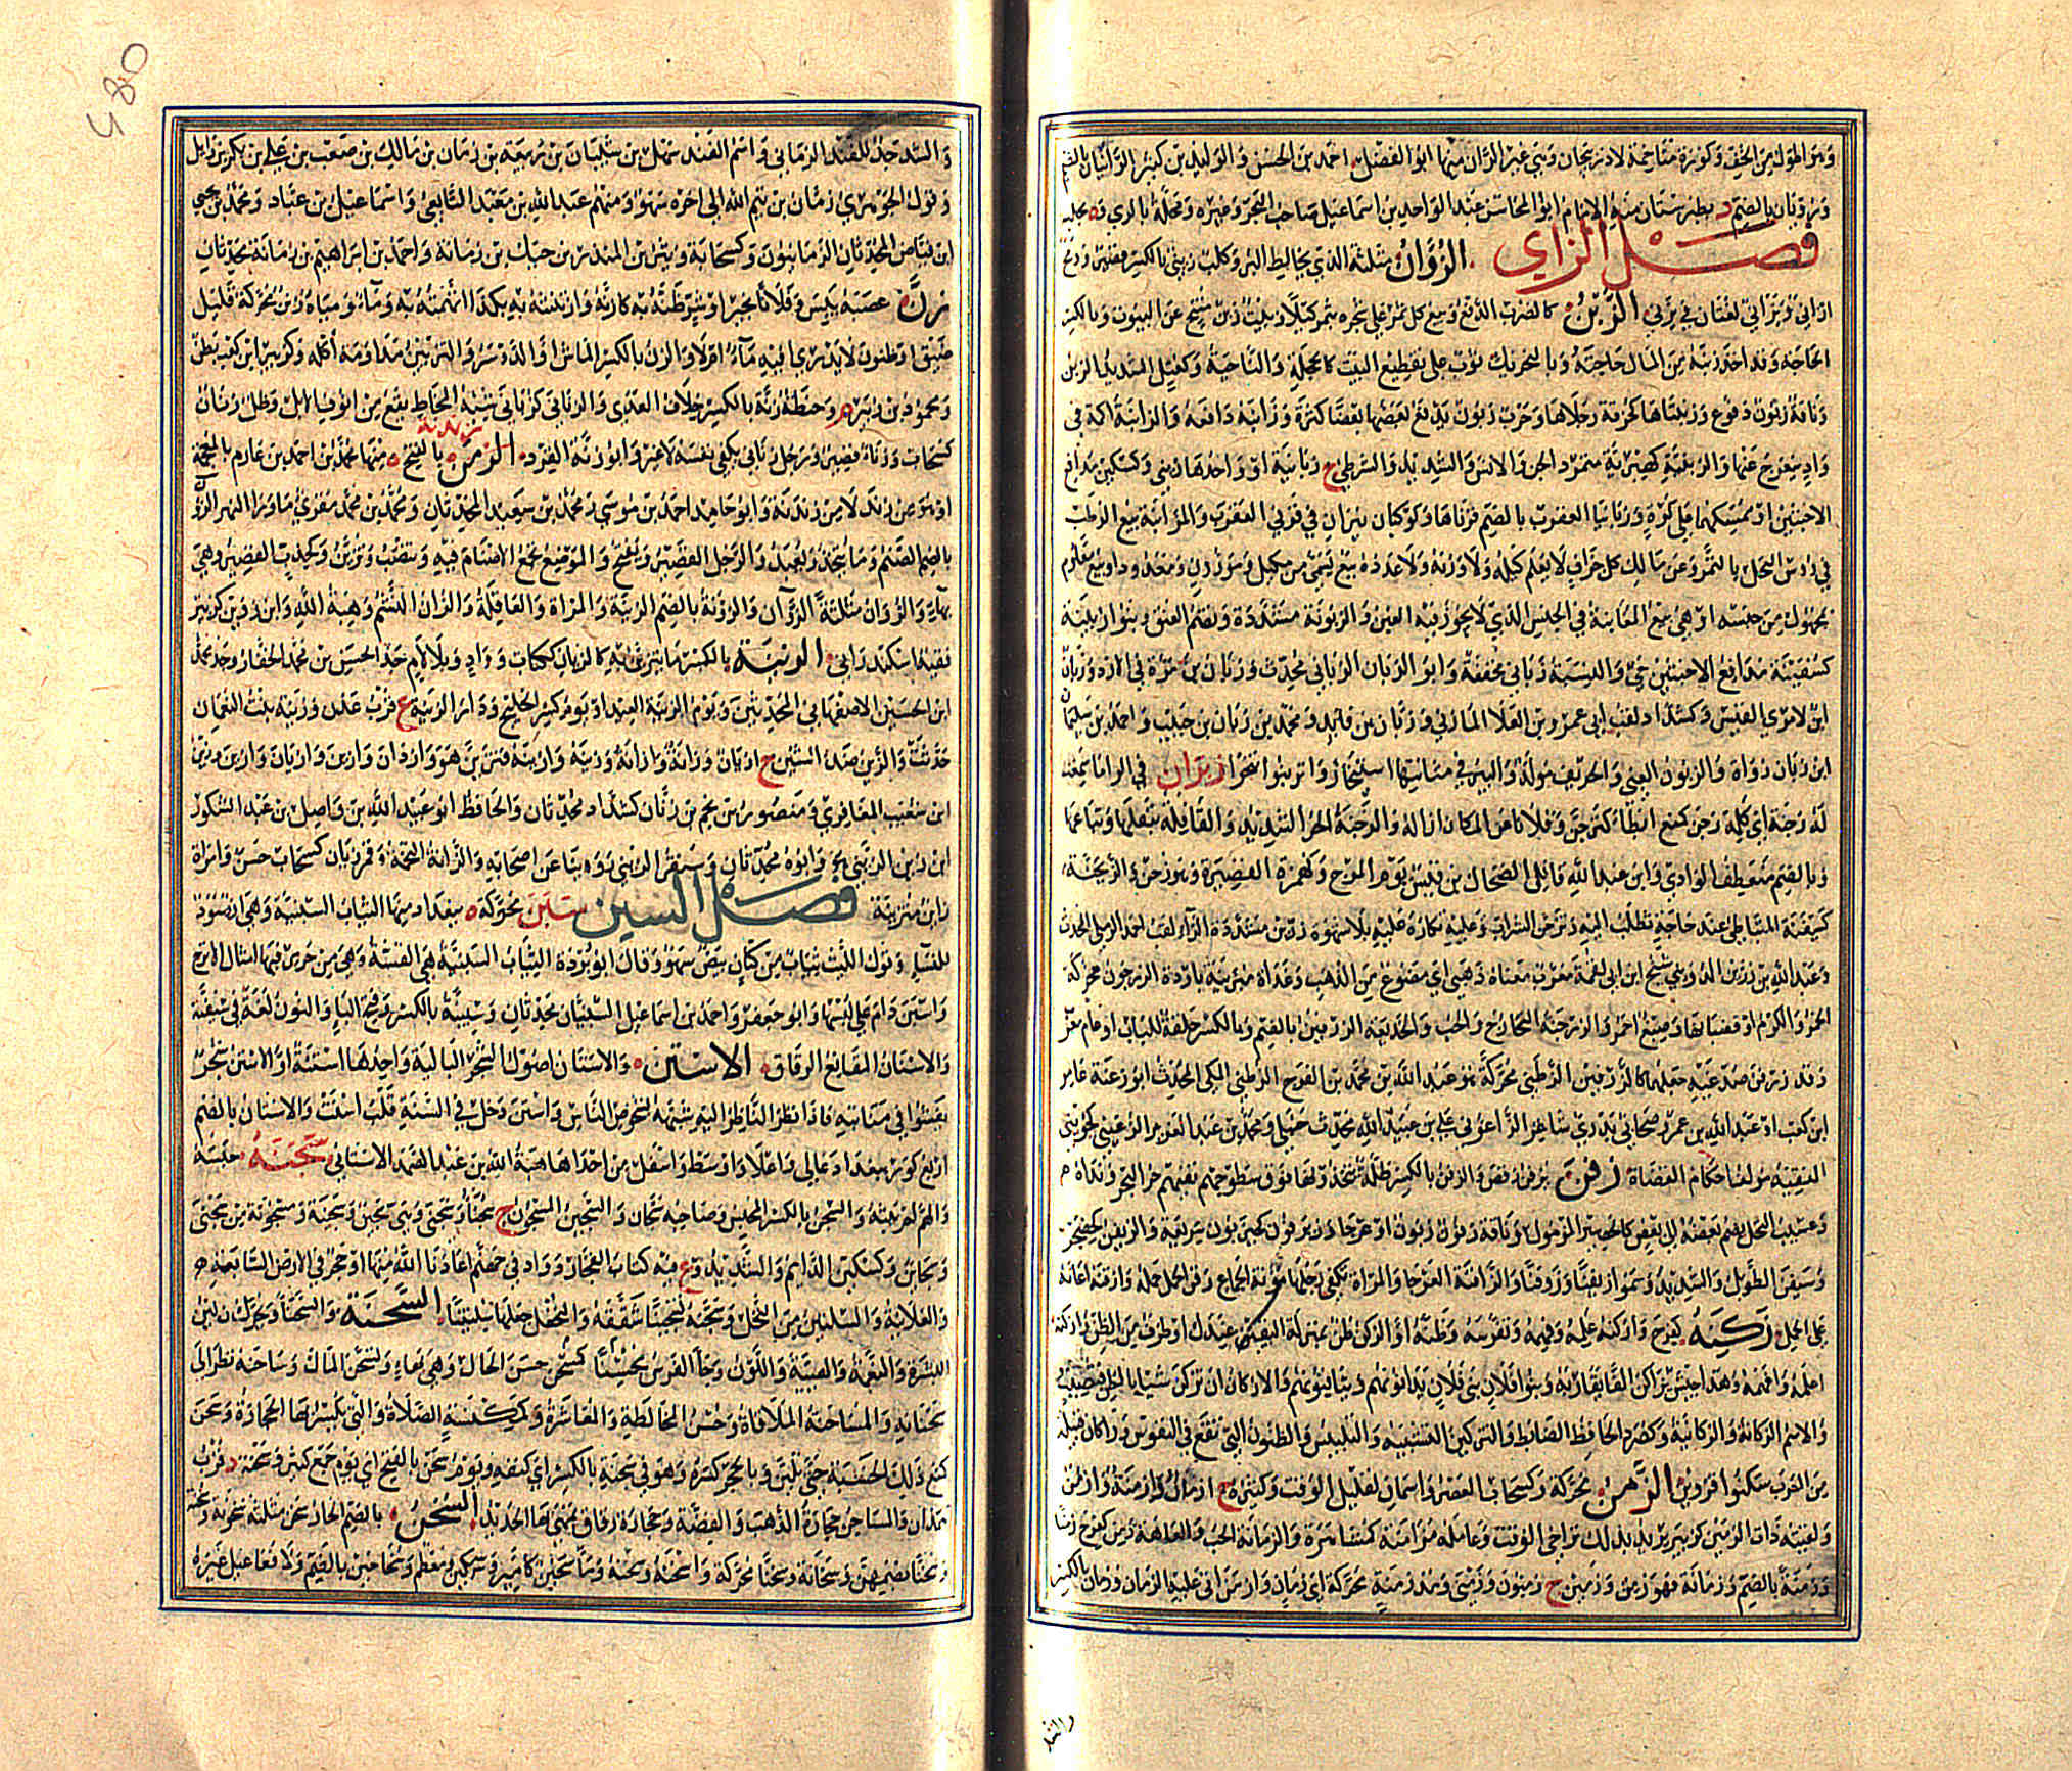 وكورة متاخمة لاذربيجان وهي غير الران منها ابو الفضل احمد بن الحسن والوليد بن كثير الرانيان بالضم
ورويان بالضم د بطبرستان منه الامام ابو المحاسن عبد الواحد بن اسماعيل صاحب البحر وغيره ومحلة بالري وة بحلب
فصل الزاي الزوان مثلثة الذي يخالط البر وكلب زئني بالكسر قصير
ازانى ويزانى لغتان في يزني الزبن كالضرب الدفع وبيع كل ثمر على شجره بتمر كيلا وبيت زبن متنح عن البيوت وبالكسر
الحاجة وقد اخذ زبنه من المال حاجته وبالتحريك ثوب على تقطيع البيت كالحجلة والناحية وكعتل الشديد الزبن
وناقة زبون دفوع وزبنتاها كحزقة رجلاها وحرب زبون يدفع بعضها بعضا كثرة وزابنه دافعه والزابنة اكمة في
واد ينعرج عنها والزبنية كهبرية متمرد الجن والانس والشديد والشرطي ج زبانية او واحدها زبني وكسكين مدافع
الاخبثين او ممسكهما على كره وزبانيا العقرب بالضم قرناها وكوكبان نيران في قرني العقرب والمزابنة بيع الرطب
في رؤس النخل بالتمر وعن مالك كل جزاف لا يعلم كيله ولا وزنه ولا عدده بيع بمسمى من مكيل وموزون ومعدود او بيع معلوم
بمجهول من جنسه او هي بيع المغابنة في الجنس الذي لا يجوز فيه الغبن والزبونة مشددة وتضم العنق وبنو زبينة
كسفينة حي والنسبة زباني مخففة وابو الزبان الزباني محدث وزبان بن مرة في الازد وزبان
ابن امرئ القيس وكشداد لقب ابي عمرو بن العلا المازني وزبان بن قائد ومحمد بن زبان بن حبيب واحمد بن سليمان
ابن زبان رواة والزبون الغبي والحريف مولد والبئر في مثابتها استيخار وانزبنوا تنحوا زبران في الرا ما سمعت
له زجنة اي كلمة زحن كمنع ابطا كتزحن وفلانا عن المكان ازاله والزحنة الحر الشديد والقافلة بثقلها وتباعها
وبالضم منعطف الوادي وابن عبد الله قاتل الضحاك بن قيس يوم المرج وكهمزة القصيرة وهو زحن والزيحنة
كسيفنة المتباطئ عند حاجة تطلب اليه وتزحن الشراب وعليه تكاره عليه بلا شهوة زربن مشددة الراء لقب احمد الرملي المحدث
وعبد الله بن زربن الدويني شيخ ابن ابي لقمة معرب معناه ذهبي اي مصنوع من الذهب باردة الزرجون محركة
الخمر والكرم او قضبانها وصبغ احمر والزرجنة التخارج والخب والخديعة الزرفين بالضم وبالكسر حلقة للباب او عام معرب
وقد زرفن صدغيه جعلهما كالزرفين الزطني محركة هو عبد الله بن محمد بن الفرج الزطني المكي المحدث ابو زعنة عامر
ابن كعب او عبد الله بن عمرو صحابي بدري شاعر الزاعوني علي بن عبيد الله محدث حنبلي ومحمد بن عبد العزيز الزعيني
الفقيه مولف احكام القضاة زفن يزفن رقص والزفن بالكسر ظلة تتخذ فوق سطوحهم تقيهم حر البحر ونداه
وعسيب النخل يضم بعضه الى بعض كالحصير المرمول وناقة زفون وزبون او عرجا وزيزفون كحيزبون سريعة والزيفن كحيدر
وسيفن الطويل والشديد وسموا زيفنا وزوفنا والزافنة العرجا والمراة تكفي رجلها مؤنة الجماع زفن الحمل حمله وازفنه اعانه
على الحمل زكنه كفرح وازكنه علمه وفهمه وتفرسه وظنه او الزكن ظن بمنزلة اليقين عندك او طرف من الظن وازكنه
اعلمه وافهمه وهذا جيش يزاكن القا يقاربه وبنو فلان بني فلان يدانونهم ويثافنونهم والازكان ان تزكن شيا بالظن فتصيب
والاسم الزكانة والزكانية وكصرد الحافظ الضابط والتزكين التشبيه والتلبيس والظنون التي تقع في النفوس وزاكان قبيلة
من العرب سكنوا قزوين الزمن محركة وكسحاب العصر واسمان لقليل الوقت وكثيره ج ازمان وازمنة وازمن
ولقيته ذات الزمين كزبير يريد بذلك تراخي الوقت وعامله مزامنة كمشاهرة والزمانة الحب والعاهة زمن كفرح زمنا
وزمنة بالضم وزمانة فهو زمن وزمين ج زمنون وزمنى ومذ زمنة محركة اي زمان وازمن اتى عليه الزمان وزمان بالكسر
والشد
والشد جد للفند الزماني واسم الفند شهل بن شيبان بن ربيعة بن زمان بن مالك بن صعب بن علي بن بكر بن وائل
وقول الجوهري زمان بن تيم الله الى اخره سهو ومنهم عبد الله بن معبد التابعي واسماعيل بن عباد ومحمد بن يحيى
ابن فياض المحدثان الزمانيون وكسحابة وبشر بن المنذر بن حبك بن زمانة واحمد بن ابراهيم بن زمانة محدثان
زن عصبه يبس وفلانا بخير او شر ظنه به كازنه وازننته به بكذا اتهمته به وماء ومياه زنن محركة قليل
ضيق او ظنون لا يدرى افيه ماء ام لا والزن بالكسر الماش او الدوسر والتزنين مداومة اكله وكزبير ابن كعب بطن
ومحمود بن زنين وحنطة زنة بالكسر خلاف العذي والزنانى كزبانى شبه المخاط يقع من انوف الابل وظل زنان
كسحاب وزناء قصير ورجل زناني يكفي نفسه لا غير وابو زنة القرد الزمن زندنة بالفتح ة منها محمد بن احمد بن عارم بالمعجمة
او هو من زند لا من زندنة وابو حامد احمد بن موسى ومحمد بن سعيد المحدثان ومحمد بن محمد مقري ما ورا النهر الزون
بالضم الصنم وما يتخذ ويعبد والرجل القصير ويفتح والموضع تجمع الاصنام فيه وتنصب وتزين وكخدب القصير وهي
بهاء والزوان مثلثة الزوان والزونة بالضم الزينة والمراة والعاقلة والزان البشم وهبة الله وابن زوين كزبير
فقيه اسكندراني الزينة بالكسر ما يتزين به كالزيان ككتاب وواد وبلا لام جد الحسن بن محمد الحفار وجد محمد
ابن الحسين الاصفهاني المحدثين ويوم الزينة العيد او يوم كسر الخليج ودار الزينة ع قرب عدن وزينة بنت النعمان
حدثت والزين ضد الشين ج ازيان وزانه وازانه وزينه وازينه فتزين هو وازدان وازين وازيان وازين وزين
ابن شعيب المعافري ومنصور بن نجم بن زيان كشداد محدثان والحافظ ابو عبيد الله بن واصل بن عبد الشكور
ابن زين الزيني وابوه محدثان وسنقر الزيني روينا عن اصحابه والزانة التخمة وقمر زيان كسحاب حسن وامراة
زاين متزينة فصل السين سبن محركة ة ببغداد منها الثياب السبنية وهي ازر سود
للنساء وقول الليث ثياب من كتان بيض سهو وقال ابو بردة الثياب السبنية هي القسية وهي من حرير فيها امثال الاترج
واسبن دام على لبسها وابو جعفر واحمد بن اسماعيل السبنيان محدثان وسيبنة بالكسر وفتح الباء والنون لغة في سيفنة
والاسبان المقانع الرقاق الاستن والاستان اصول الشجر البالية واحدها استنة او الاستن شجر
يفشو في منابته فاذا نظر الناظر اليه شبهه بشخوص الناس واستن دخل في السنة قلب اسنت والاستان بالضم
اربع كور ببغداد عالي واعلا واوسط واسفل من احداها هبة الله بن عبد الصمد الاستاني سجنه حبسه
والهم لم يبثه والسجن بالكسر المحبس وصاحبه سجان والسجين المسجون ج سجنا وسجنى وهي سجين وسجينة ومسجونة من سجنى
وسجاين وكسكين الدائم والشديد وع فيه كتاب الفجار وواد في جهنم اعاذنا الله منها او حجر في الارض السابعة
والعلانية والسلتين من النخل وسجنه تسجينا شققه والنخل جعلها سلتينا السحنة والسحنا ويحركان لين
البشرة والنعمة والهيئة واللون وجا الفرس مسحنا كمحسن حسن الحال وهي بهاء وتسحن المال وساحنه نظر الى
سحنائه والمساحنة الملاقاة وحسن المخالطة والمعاشرة وكمكنسة الصلاءة والتي تكسر بها الحجارة وسحن
كمنع دلك الخشبة حتى تلين وبالحجر كسره وهو في سحنته بالكسر اي كنفه ويوم سحن بالفتح اي يوم جمع كثير وسحنة د قرب
همذان والمساحن حجارة الذهب والفضة وحجارة رقاق يمهى بها الحديد السخن بالضم الحار سخن مثلثة سخونة وسخنة
وسخنا بضمهن وسخانة وسخنا محركة واسخنه وسخنه وماء سخين كامير وسكين ومعظم وسخاخين بالضم ولا فعاعيل غيره